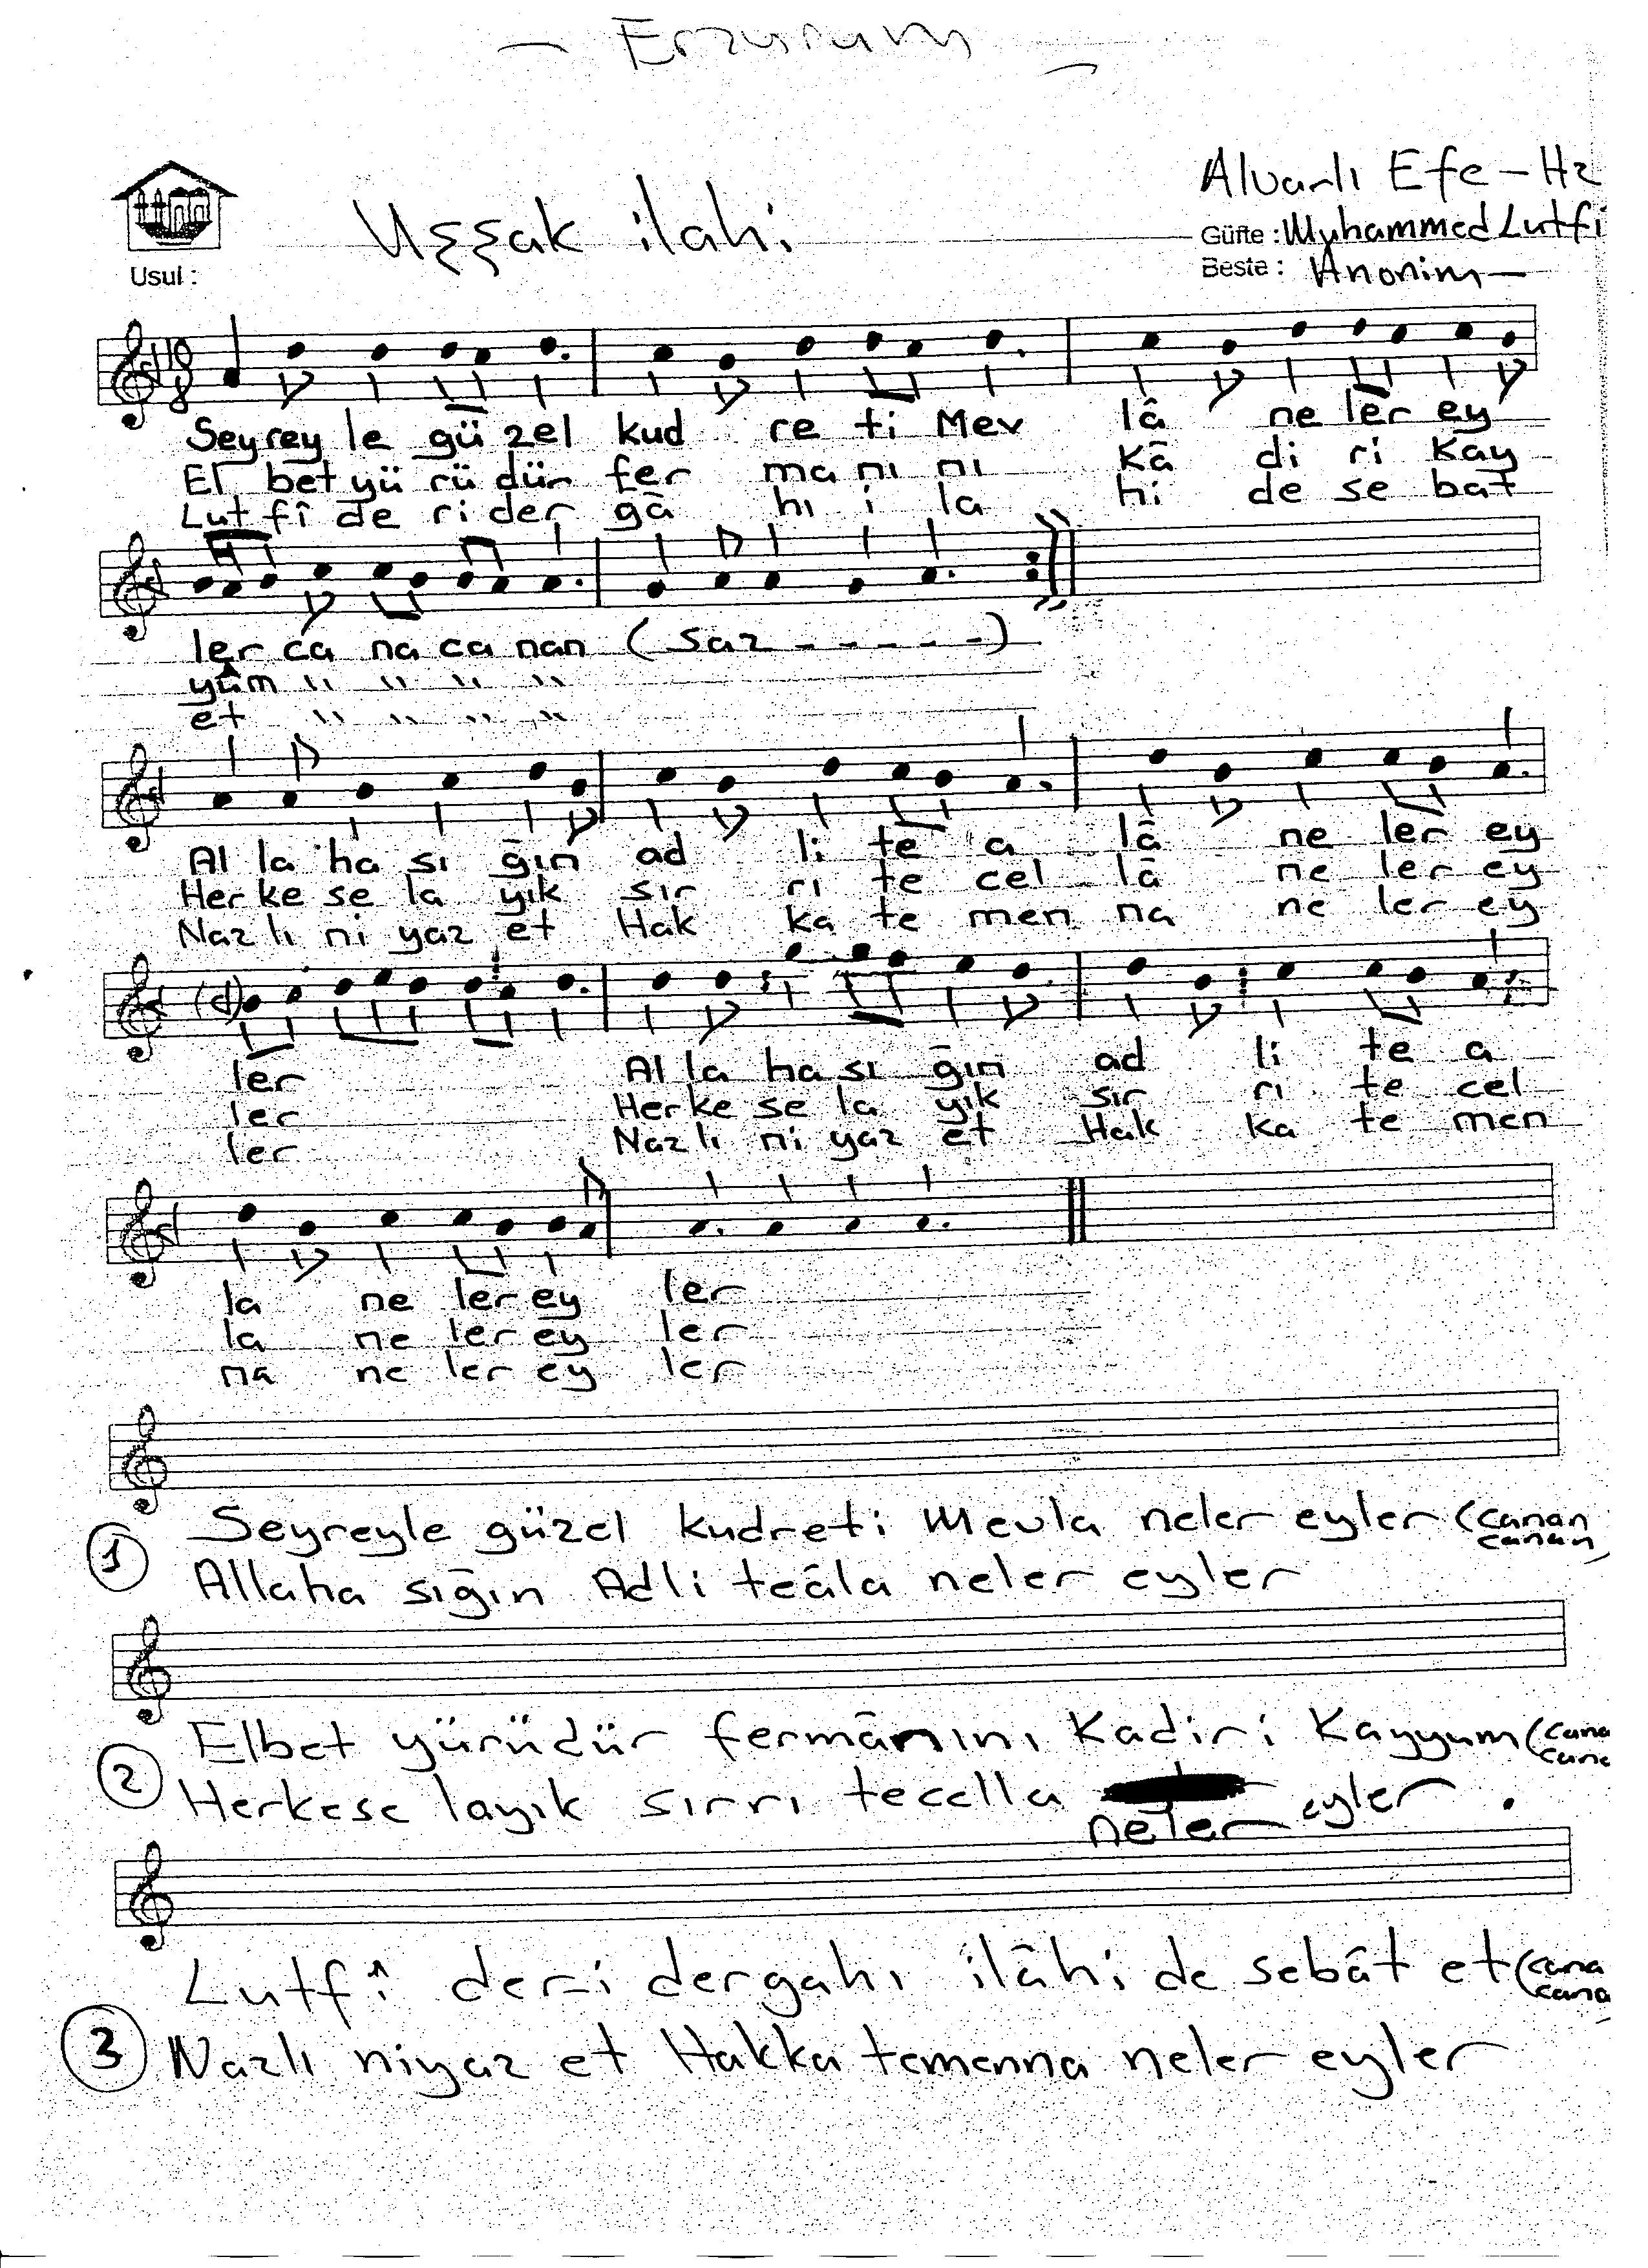 — Erzurum —
Alvarlı Efe - Hz
Uşşak ilahi
Güfte : Muhammed Lutfi
Usul :
Beste : Anonim —
10
8
Seyrey le gü zel kud re ti Mev lâ ne ler ey
El bet yü rü dür fer ma nı nı Kâ di ri Kay
Lut fî de ri der gâ hı i la hi de se bat
ler ca na ca nan ( Saz - - - - - )
yûm " " " "
et " " " "
Al la ha sı ğın ad li te a lâ ne ler ey
Her ke se la yık sır rı te cel lâ ne ler ey
Naz lı ni yaz et Hak ka te men na ne ler ey
ler Al la ha sı ğın ad li te a
ler Her ke se la yık sır rı te cel
ler Naz lı ni yaz et Hak ka te men
la ne ler ey ler
la ne ler ey ler
na ne ler ey ler
1 Seyreyle güzel kudreti Mevla neler eyler (canan canan)
Allaha sığın Adli teâla neler eyler
2 Elbet yürüdür fermânını Kadiri Kayyum (cana cana
Herkese layık sırrı tecella neler eyler .
Lutfî deri dergahı ilâhi de sebât et (cana cana
3 Nazlı niyaz et Hakka temenna neler eyler